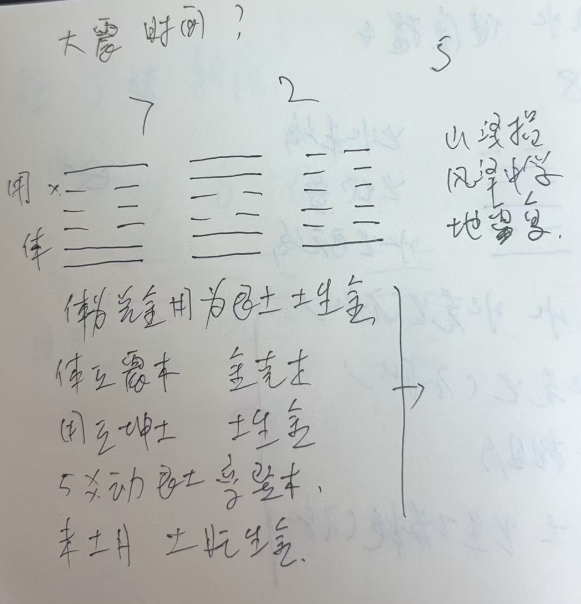 大震时间？
7 2 5
山泽损
风泽中孚
地雷复.
用 x
体
体为兑金用为艮土 土生金
体互震木 金克木
用互坤土 土生金
5爻动艮土变巽木.
未土月 土旺生金.